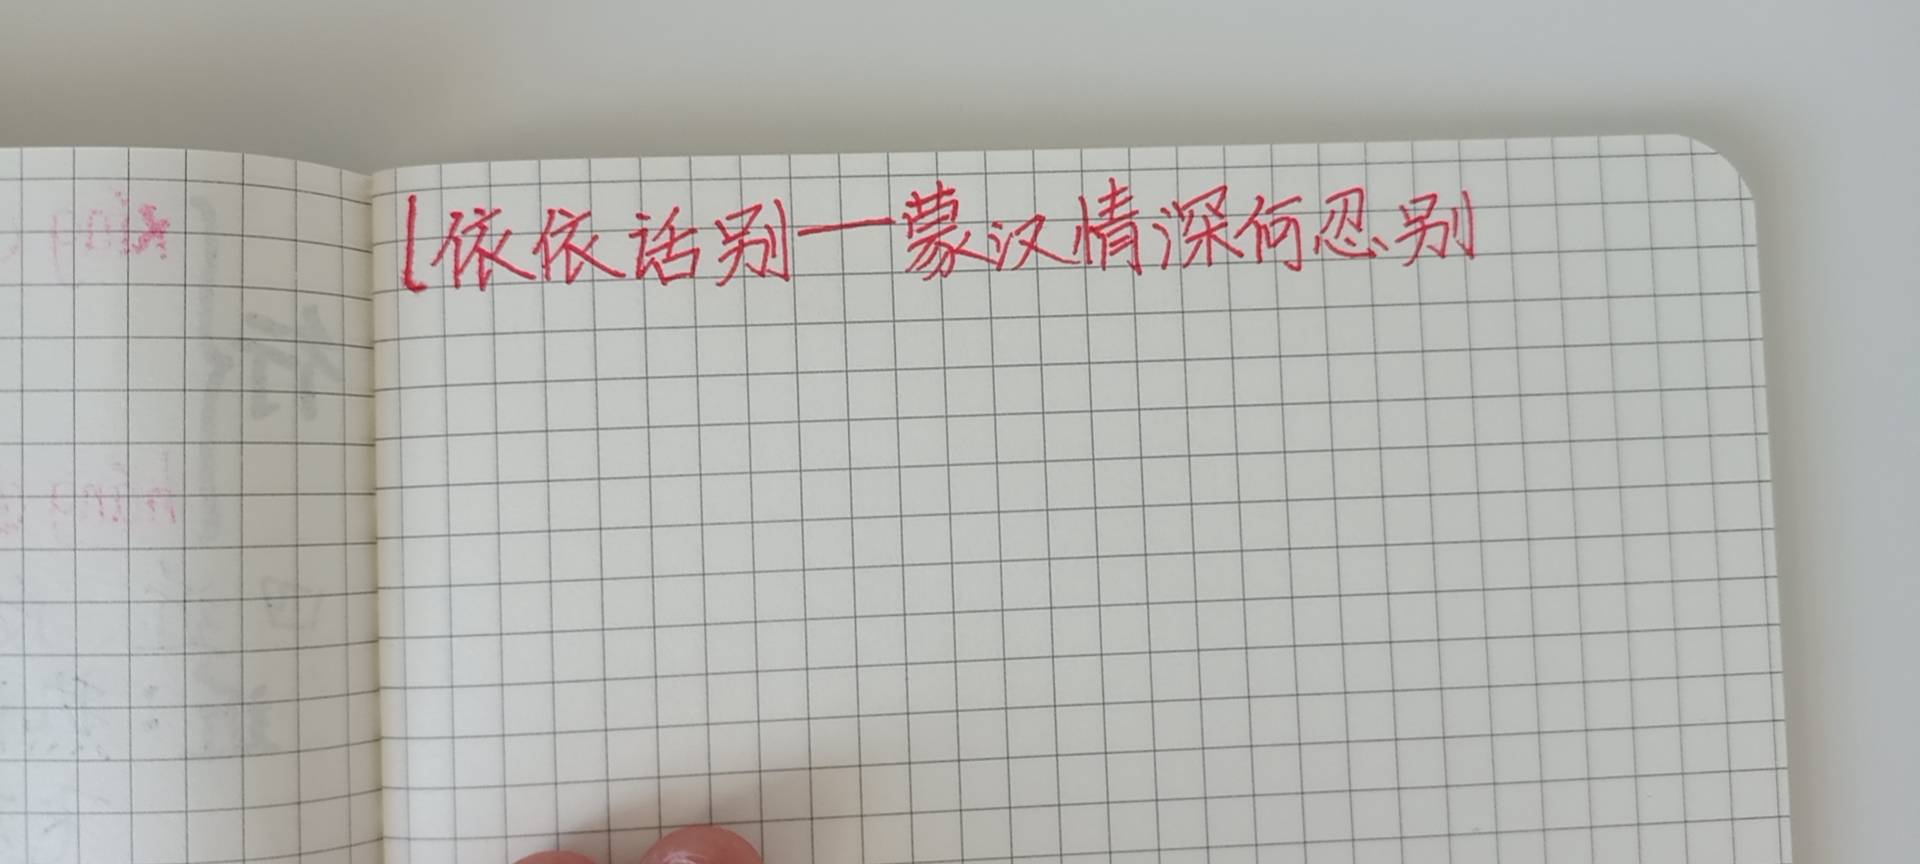 依依话别——蒙汉情深何忍别